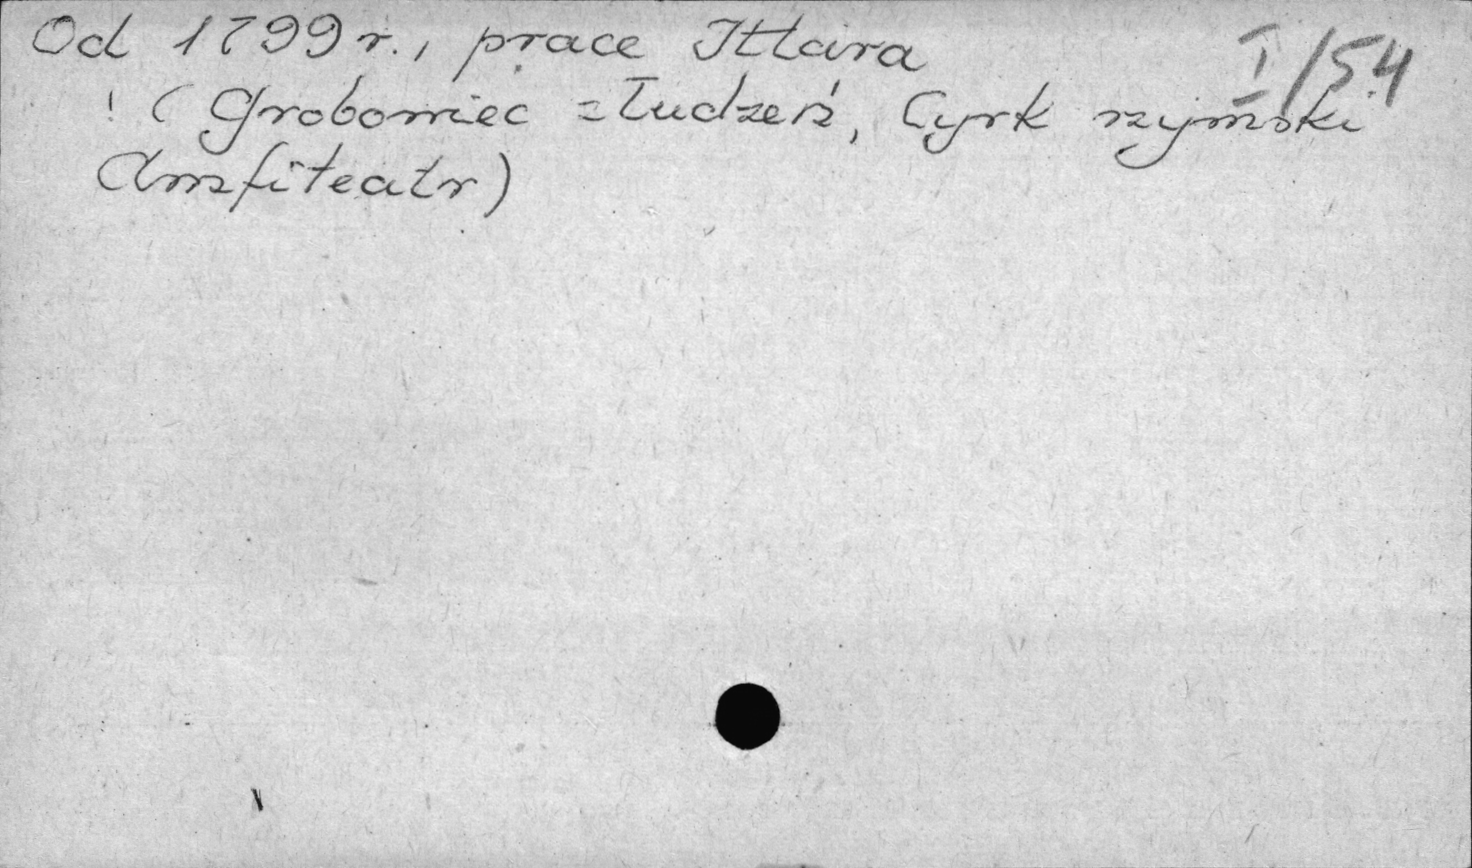 Od 1799 r., prace Ittara
I/54
! (Grobowiec złudzeń, Cyrk rzymski
Amfiteatr)